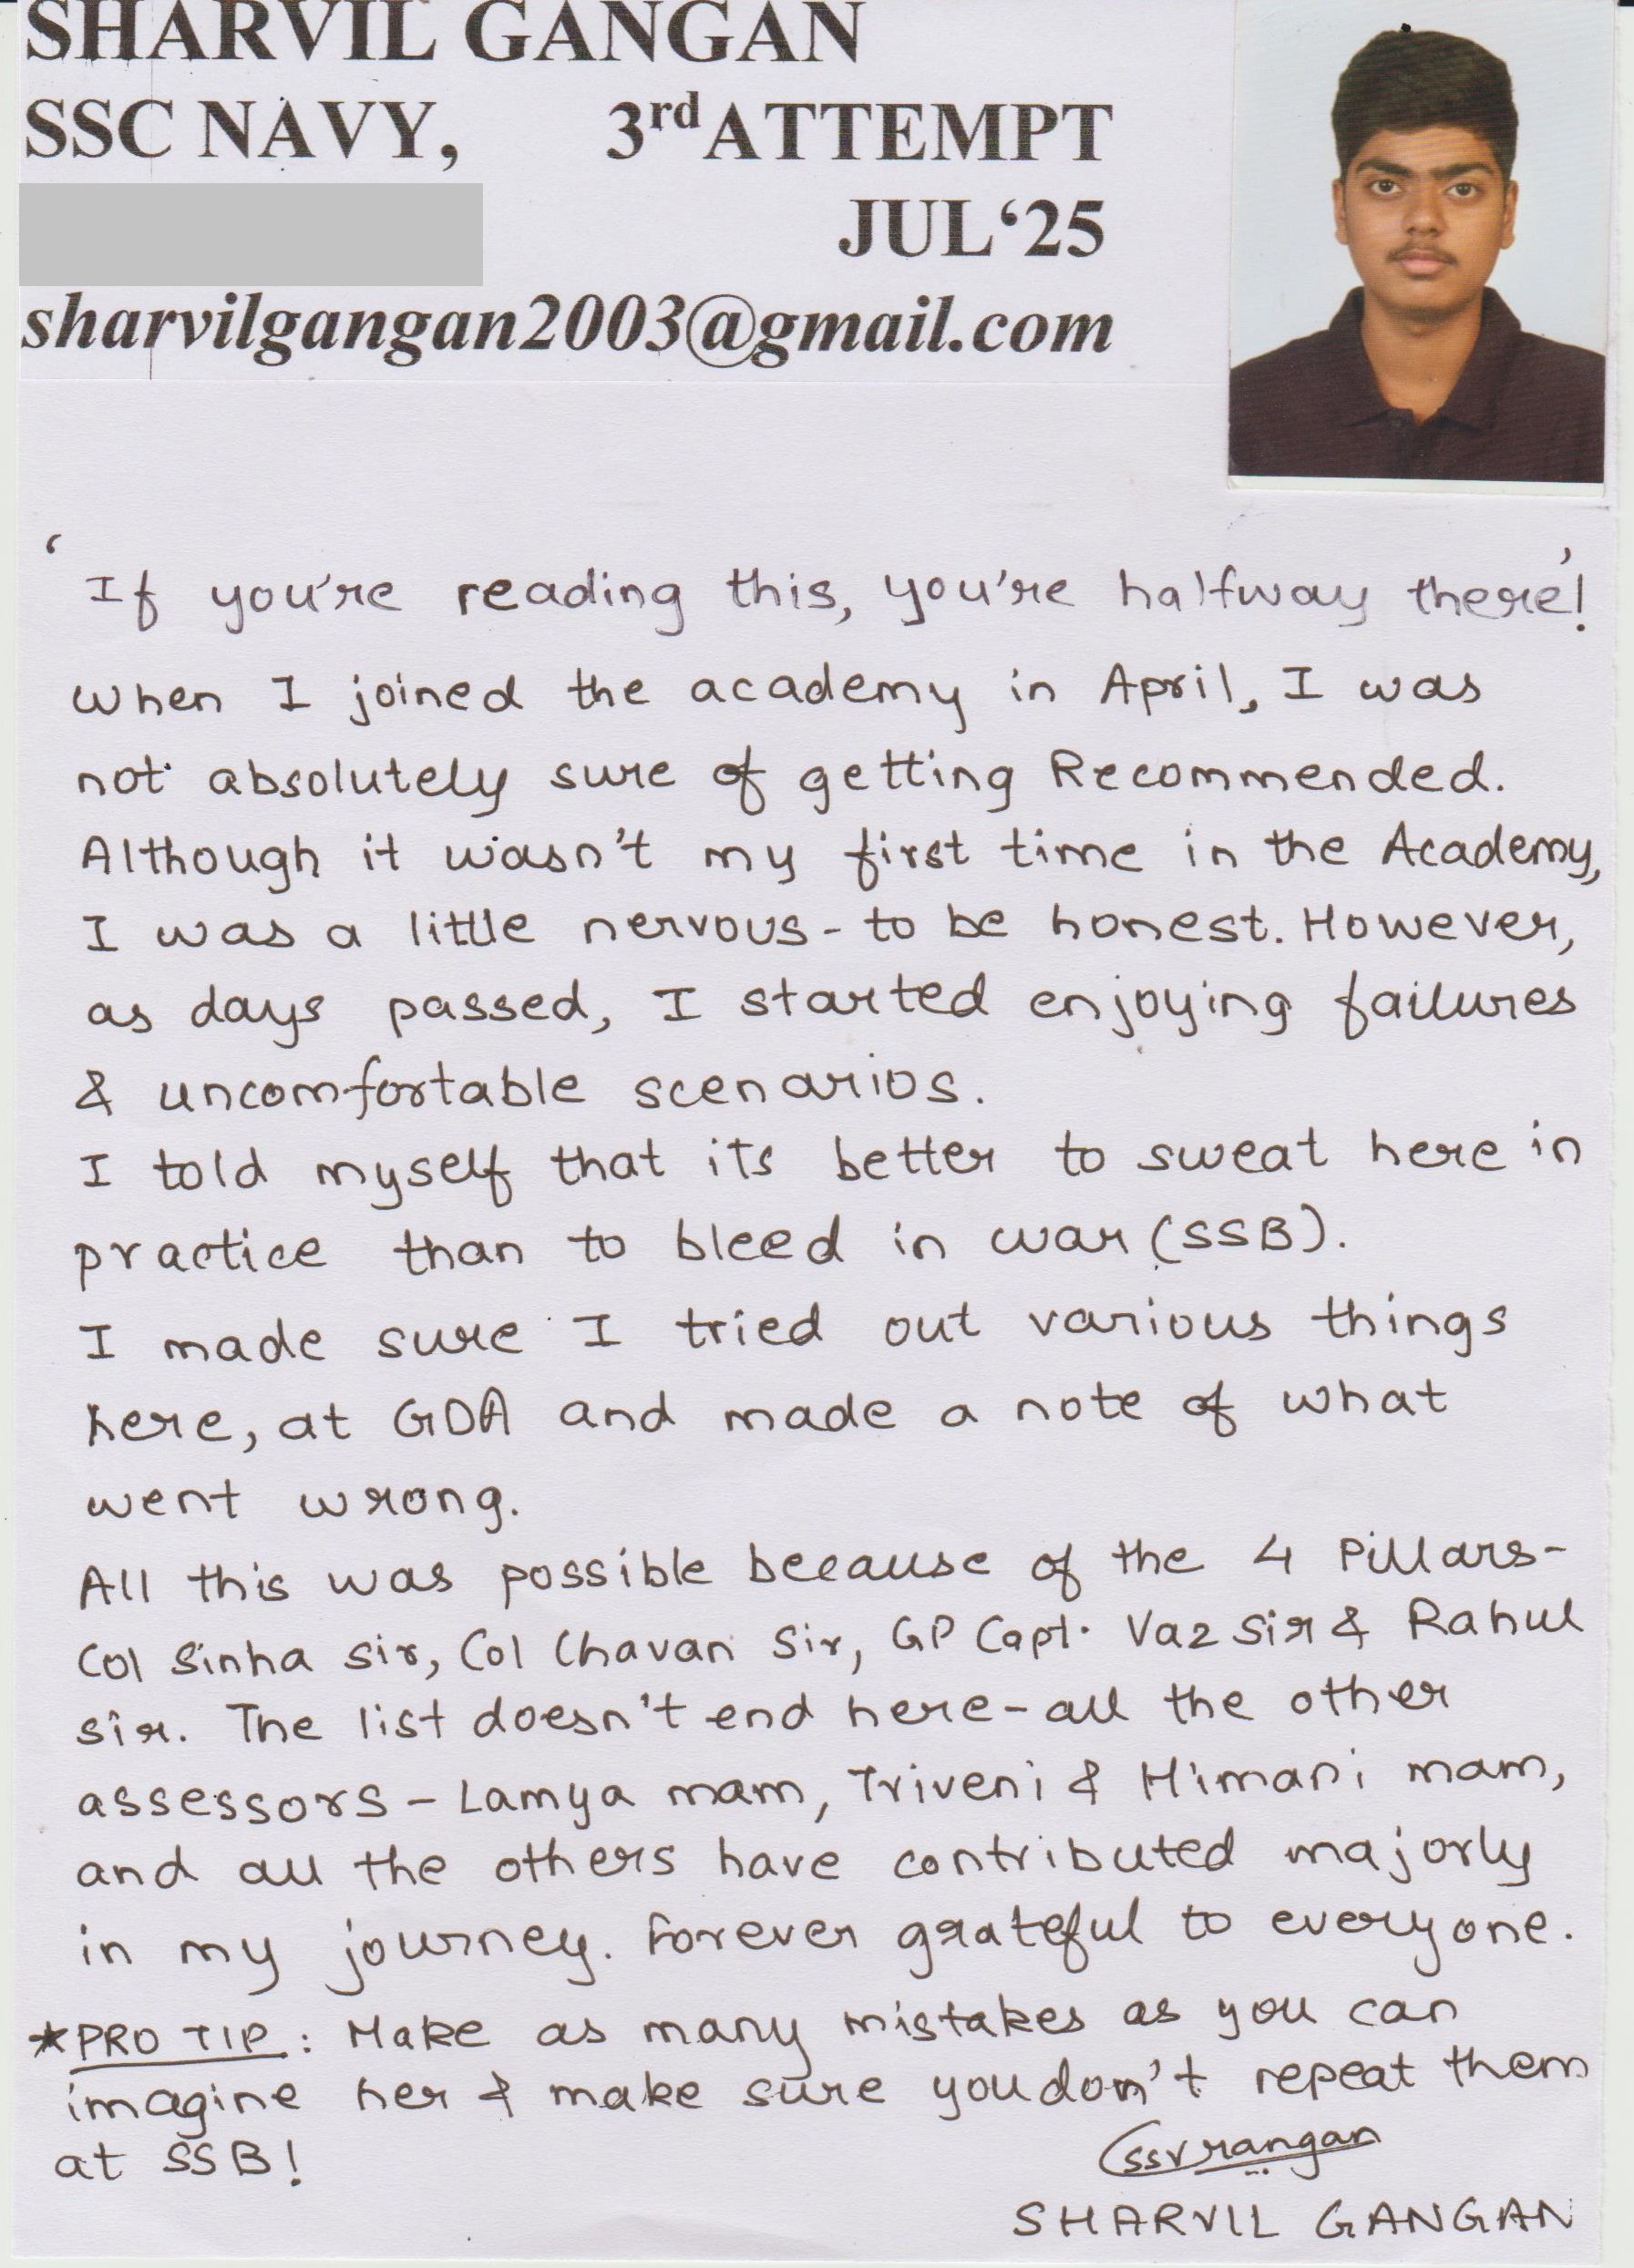 SHARVIL GANGAN
SSC NAVY, 3rd ATTEMPT
JUL‘25
sharvilgangan2003@gmail.com
‘If you're reading this, you're halfway there’!
When I joined the academy in April, I was
not absolutely sure of getting Recommended.
Although it wasn't my first time in the Academy,
I was a little nervous - to be honest. However,
as days passed, I started enjoying failures
& uncomfortable scenarios.
I told myself that its better to sweat here in
practice than to bleed in war (SSB).
I made sure I tried out various things
here, at GDA and made a note of what
went wrong.
All this was possible because of the 4 Pillars-
Col Sinha sir, Col Chavan Sir, GP Capt. Vaz Sir & Rahul
sir. The list doesn't end here - all the other
assessors - Lamya mam, Triveni & Himani mam,
and all the others have contributed majorly
in my journey. Forever grateful to everyone.
*PRO TIP : Make as many mistakes as you can
imagine her & make sure you don't repeat them
at SSB!
SHARVIL GANGAN